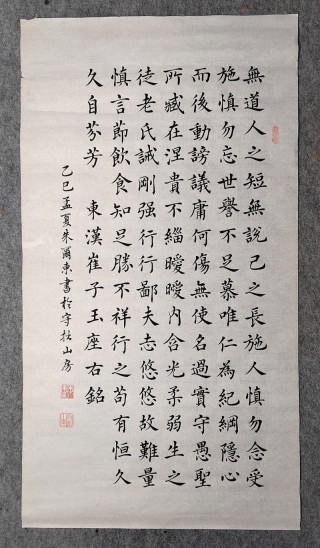 無道人之短無說己之長施人慎勿念受
施慎勿忘世譽不足慕唯仁為紀綱隱心
而後動謗議庸何傷無使名過實守愚聖
所臧在涅貴不緇曖曖內含光柔弱生之
徒老氏誡剛强行行鄙夫志悠悠故難量
慎言節飲食知足勝不祥行之苟有恒久
久自芬芳 東漢崔子玉座右銘
乙巳孟夏朱爾東書於守拙山房